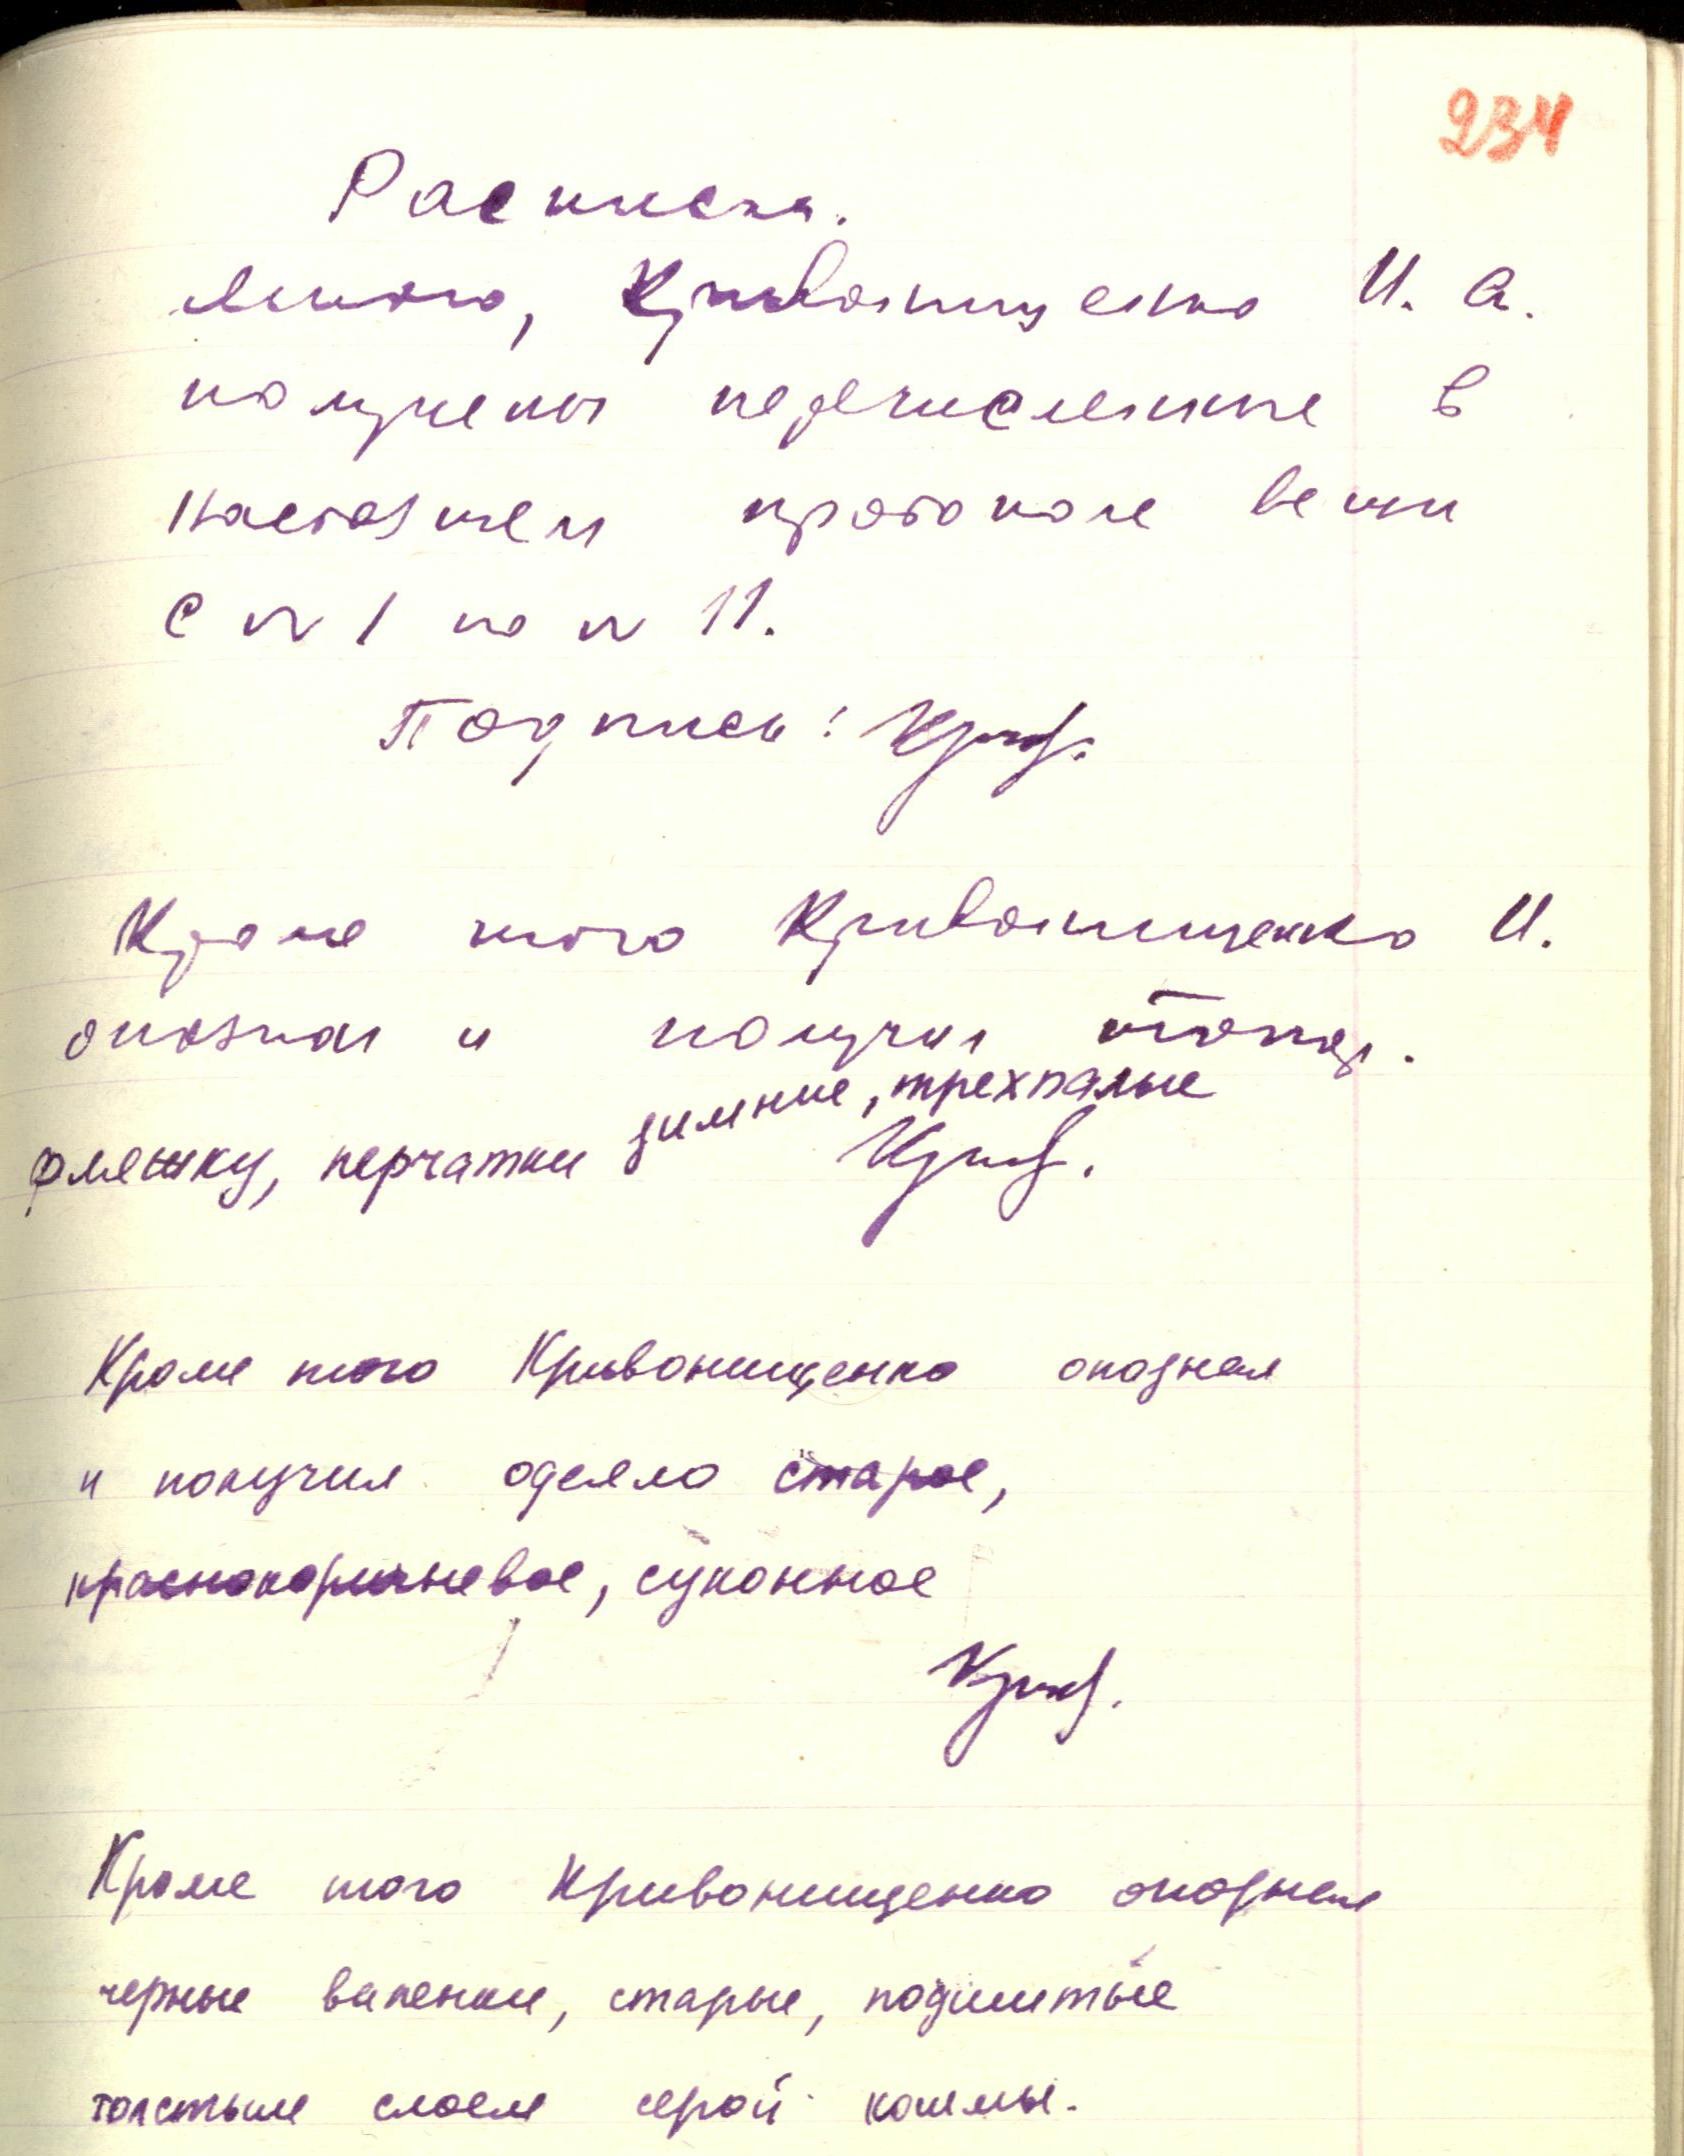 234
Расписка.
Мною, Кривонищенко И. А.
получены перечисленные в
настоящем протоколе вещи
с № 1 по № 11.
Подпись: Крив.
Кроме того Кривонищенко И.
опознал и получил топор.
фляжку, перчатки зимние, трехпалые
Крив.
Кроме того Кривонищенко опознал
и получил одеяло старое,
краснокоричневое, суконное
Крив.
Кроме того Кривонищенко опознал
черные валенки, старые, подшитые
толстым слоем серой кошмы.